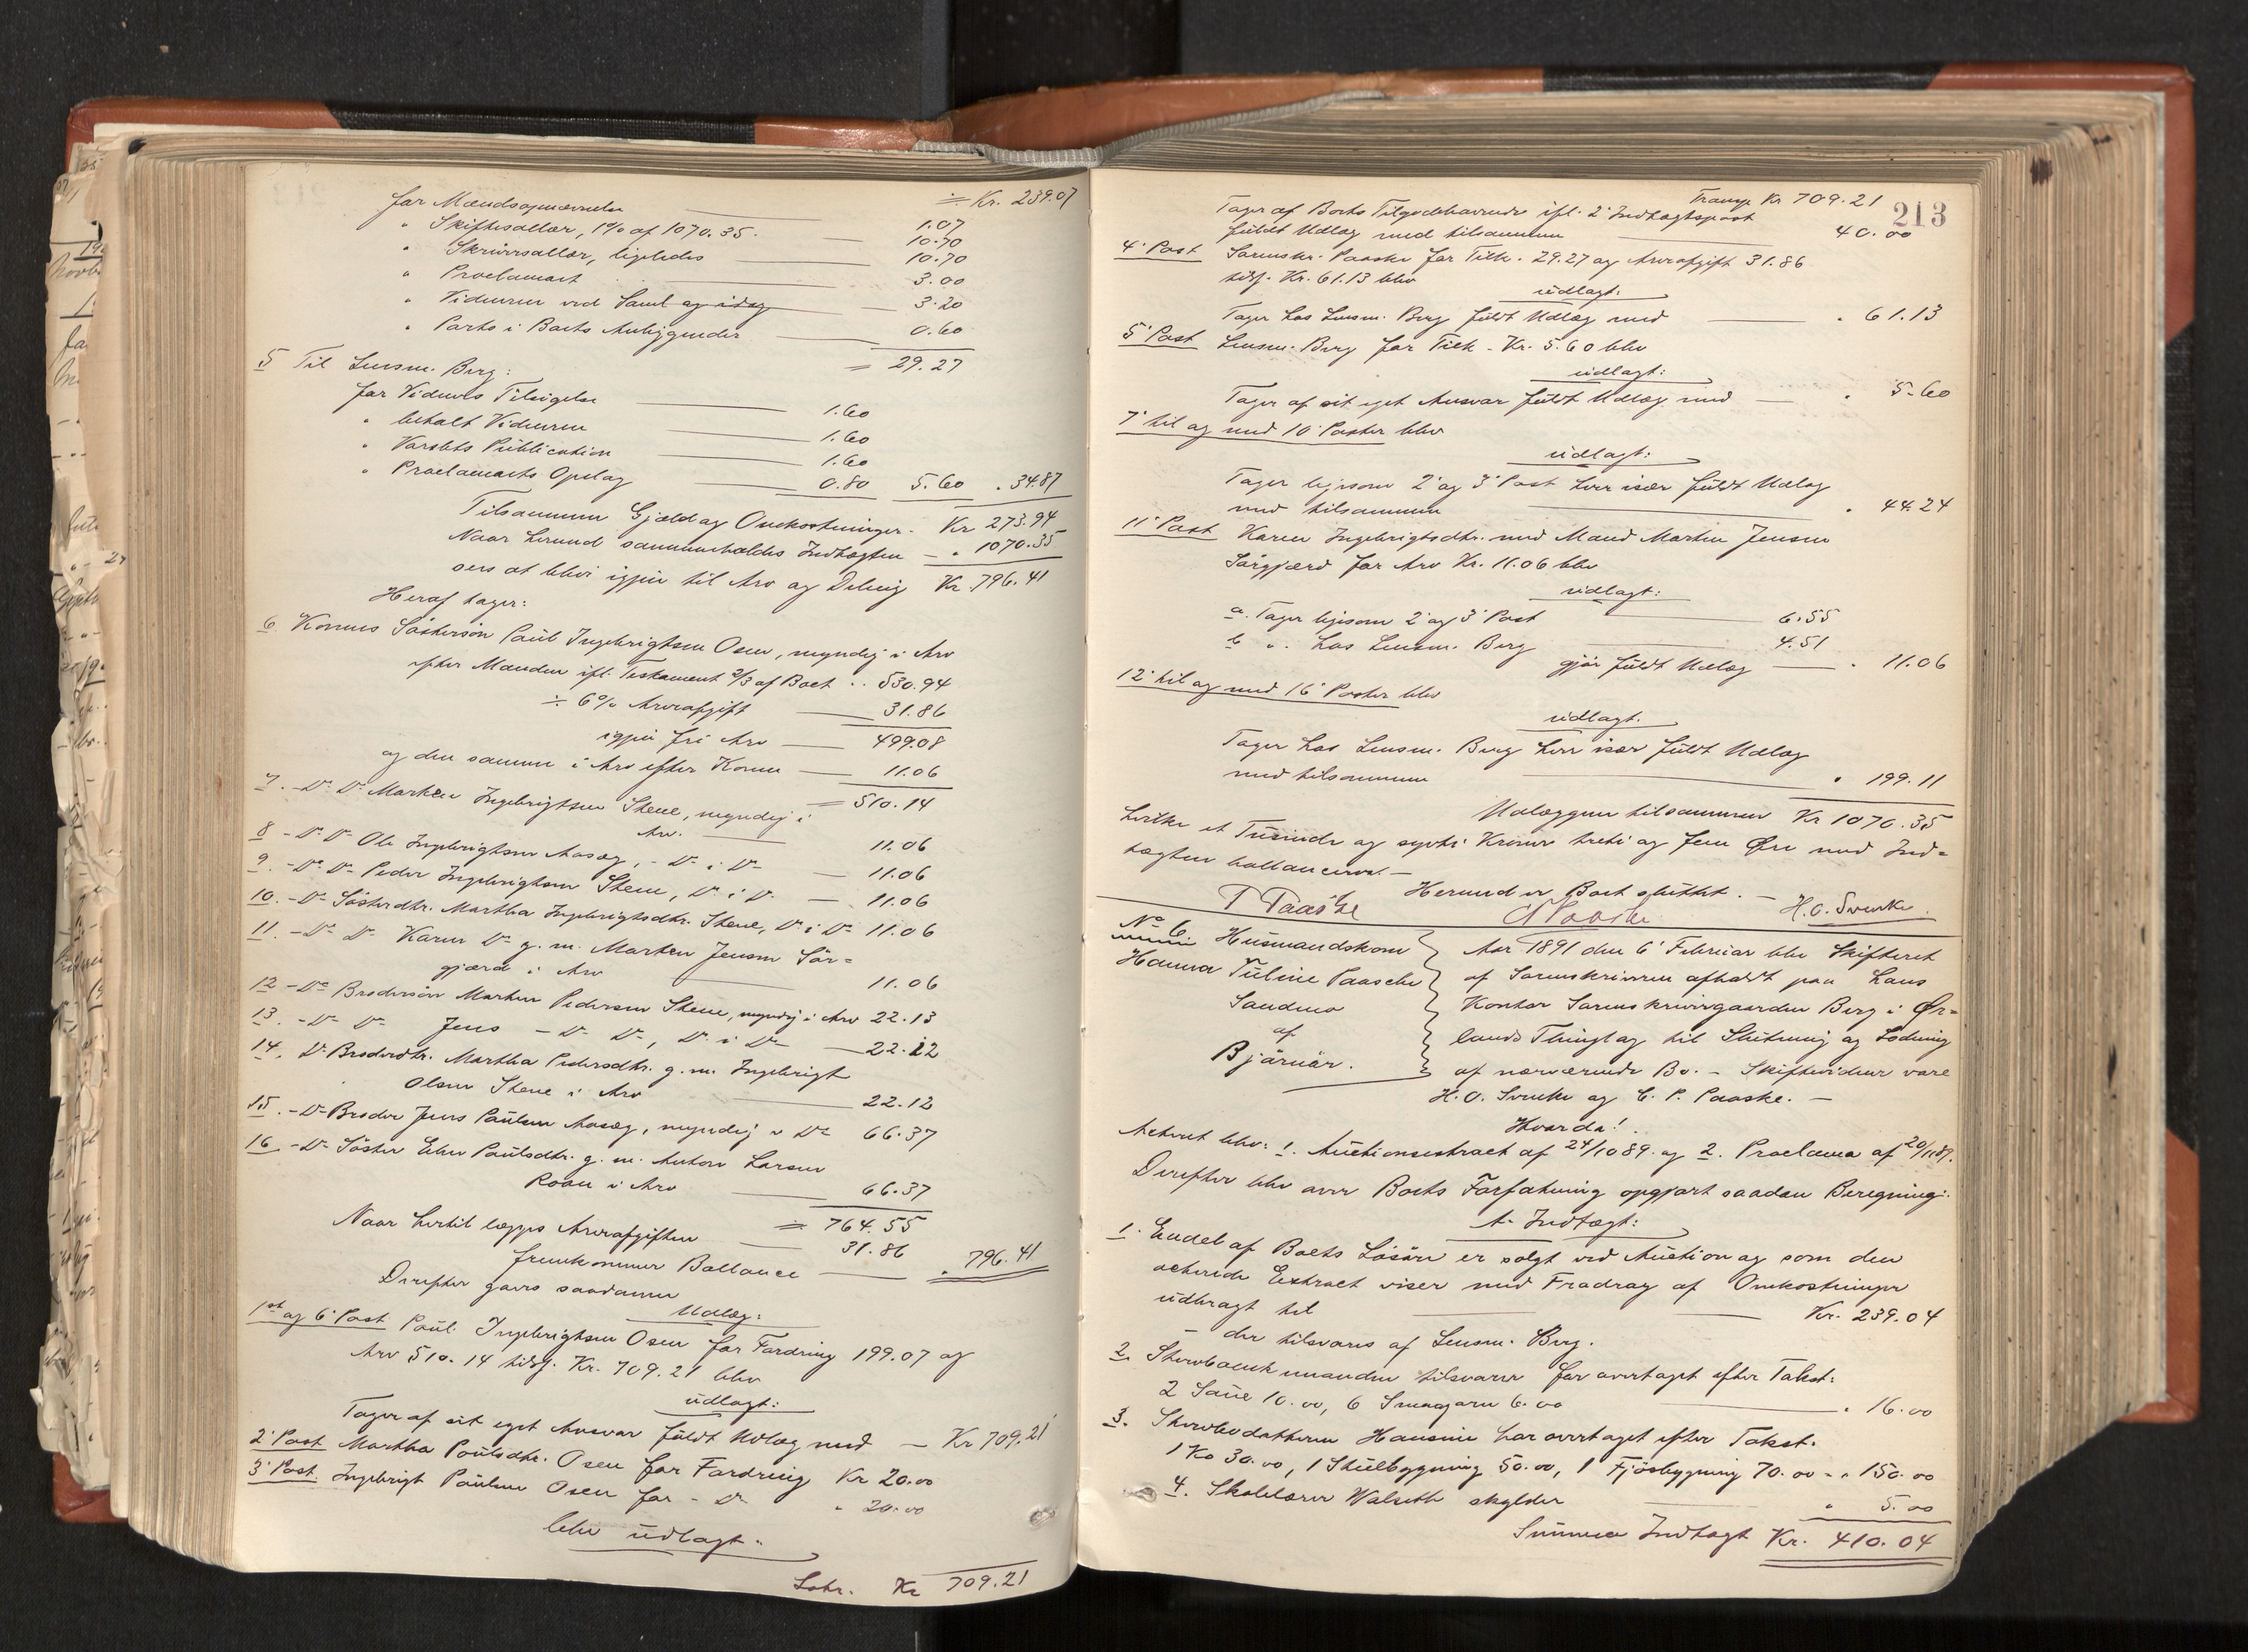 ÷ Kr. 239.07
for Mændsopnævnelse — 1.07
" Skiftesallær, 1% af 1070.35. — 10.70
" Skriversallær, ligeledes — 10.70
" Proclamaet — 3.00
" Vidnerne ved Saml og idag — 3.20
" Porto i Boets Anliggender — 0.60
= 29.27
5 Til Lensm. Berg:
for Vidners Tilsigelse — 1.60
" betalt Vidnerne — 1.60
" Varslets Publication — 1.60
" Proclamaets Opslag — 0.80 5.60 " 34.87
Tilsammen Gjæld og Omkostninger. Kr 273.94
Naar hermed sammenholdes Indtægten — " 1070.35
sees at blive igjen til Arv og Deling Kr. 796.41
Heraf tager:
6. Konens Søstersøn Paul Ingebrigtsen Osen, myndig i Arv
efter Manden ifl. Testament 2/3 af Boet .. 530.94
÷ 6% Arveafgift — 31.86
igjen fri Arv — 499.08
og den samme i Arv efter Konen — 11.06
= 510.14
7. - Do Do Morten Ingebrigtsen Skene, myndig i
Arv. — 11.06
8 - Do Do Ole Ingebrigtsen Aasæg, - Do i Do — 11.06
9. - Do Do Peder Ingebrigtsen Skene, Do i Do — 11.06
10. - Do Søsterdtr. Martha Ingebrigtsdtr. Skene, Do i Do 11.06
11. - Do Do Karen Do g. m. Morten Jensen Sør=
gjærd i Arv — 11.06
12 - Do Brodersøn Morten Pedersen Skene, myndig i Arv 22.13
13. - Do Do Jens - Do Do, Do i Do — 22.12
14. Do Broderdtr. Martha Pedersdtr. g. m. Ingebrigt
Olsen Skene i Arv — 22.12
15. - Do Broder Jens Paulsen Aasæg, myndig i Do 66.37
16. - Do Søster Elen Paulsdtr. g. m. Anton Larsen
Roan i Arv — 66.37
= 764.55
Naar hertil lægges Arveafgiften — 31.86
fremkommer Ballance — " 796.41
Derefter gaves saadanne
Udlæg:
1st og 6' Post Paul Ingebrigtsen Osen for Fordring 199.07 og
Arv 510.14 tils. Kr. 709.21 blev
udlagt:
Tager af sit eget Ansvar fuldt Udlæg med — Kr 709.21
2' Post Martha Paulsdtr. Osen for Fordring Kr 20.00
3' Post. Ingebrigt Paulsen Osen for - Do " 20.00
blev udlagt.
Latr. Kr 709.21
213
Transp. Kr 709.21
Tager af Boets Tilgodehavende ifl. 2' Indtægtspost
fuldt Udlæg med tilsammen — 40.00
4' Post Sorenskr. Paaske for Tilk. 29.27 og Arveafgift 31.86
tils. Kr. 61.13 blev
udlagt:
Tager hos Lensm. Berg fuldt Udlæg med — " 61.13
5' Post Lensm. Berg for Tilk. Kr. 5.60 blev
udlagt:
Tager af sit eget Ansvar fuldt Udlæg med — " 5.60
7' til og med 10' Poster blev
udlagt:
Tager ligesom 2' og 3' Post hver især fuldt Udlæg
med tilsammen — " 44.24
11' Post Karen Ingebrigtsdtr. med Mand Morten Jensen
Sørgjærd for Arv Kr. 11.06 blev
udlagt:
a. Tager ligesom 2' og 3' Post — 6.55
b " . hos Lensm. Berg — 4.51
gjør fuldt Udlæg — " 11.06
12' til og med 16' Poster blev
udlagt.
Tager hos Lensm. Berg hver især fuldt Udlæg
med tilsammen — " 199.11
Udlæggene tilsammen Kr 1070.35
hvilke et Tusinde og sytti Kroner treti og fem Øre med Ind=
tægten ballancerer. —
Hermed er Boet sluttet. —
T Paaske C P Paaske H. O. Svenke.
No 6. Husmandskone
Hanna Tuline Paasche
Sandmo
af
Bjørnør.
Aar 1891 den 6' Februar blev Skifteret
af Sorenskriveren afholdt paa hans
Kontor Sorenskrivergaarden Berg i Ør=
lands Thinglag til Slutning og Lodning
af nærværende Bo. — Skiftevidner vare
H. O. Svenke og C. P. Paaske. —
Hvorda!
Acteret blev: 1. Auctionsextract af 24/10 89. og 2. Proclama af 20/11 89.
Derefter blev over Boets Forfatning opgjort saadan Beregning:
A. Indtægt:
1. Endel af Boets Løsøre er solgt ved Auction og som den
acterede Extract viser med Fradrag af Omkostninger
udbragt til — Kr. 239.04
der tilsvares af Lensm. Berg.
2. Stervboenkemanden tilsvarer for overtaget efter Takst:
2 Saue 10.00, 6 Smaagarn 6.00 — " 16.00
3. Stervbodatteren Hansine har overtaget efter Takst:
1 Ko 30.00, 1 Stuebygning 50.00, 1 Fjøsbygning 70.00 - " 150.00
4. Skolelærer Walseth skylder — " 5.00
Summa Indtægt Kr. 410.04